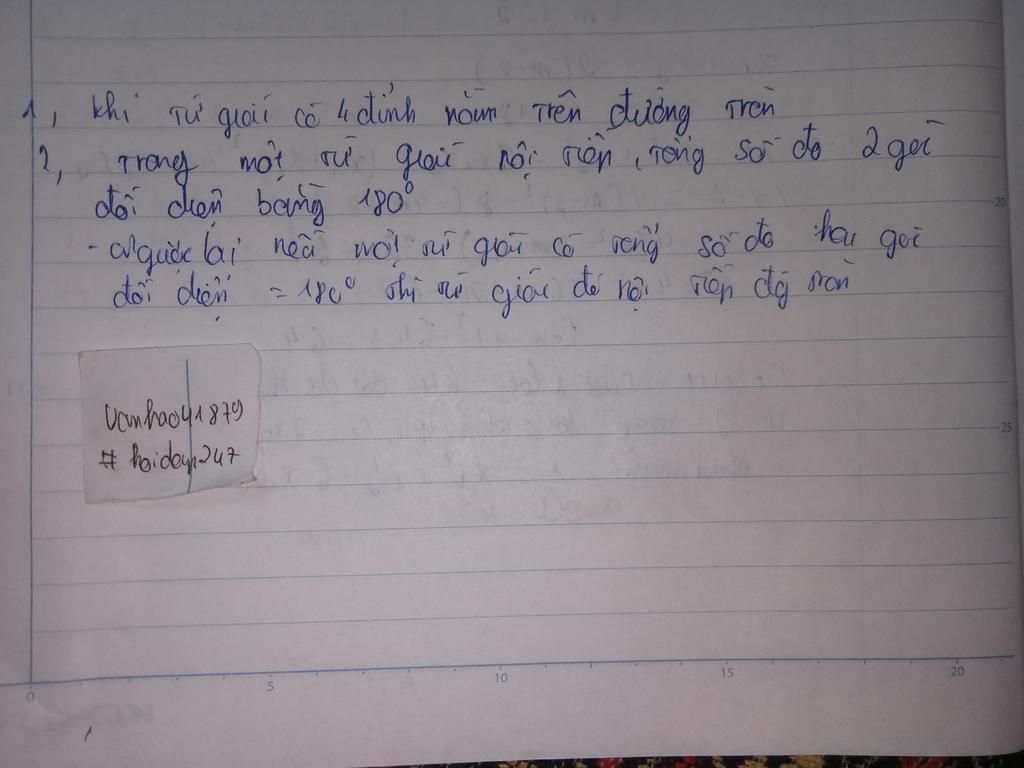 1, Khi tứ giác có 4 đỉnh nằm trên đường tròn
2, Trong một tứ giác nội tiếp, tổng số đo 2 góc
đối diện bằng 180°
- Ngược lại nếu một tứ giác có tổng số đo hai góc
đối diện = 180° thì tứ giác đó nội tiếp đg tròn
Vanhao41879
# hoidap247
20
25
0 5 10 15 20